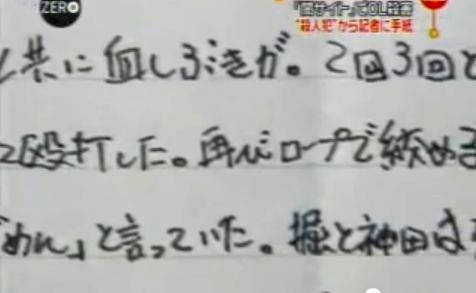 ZERO
「闇サイト」でOL殺害
"殺人犯"から記者に手紙
と共に血しぶきが。2回3回と
殴打した。再びロープで絞める
めん」と言っていた。堀と神田は